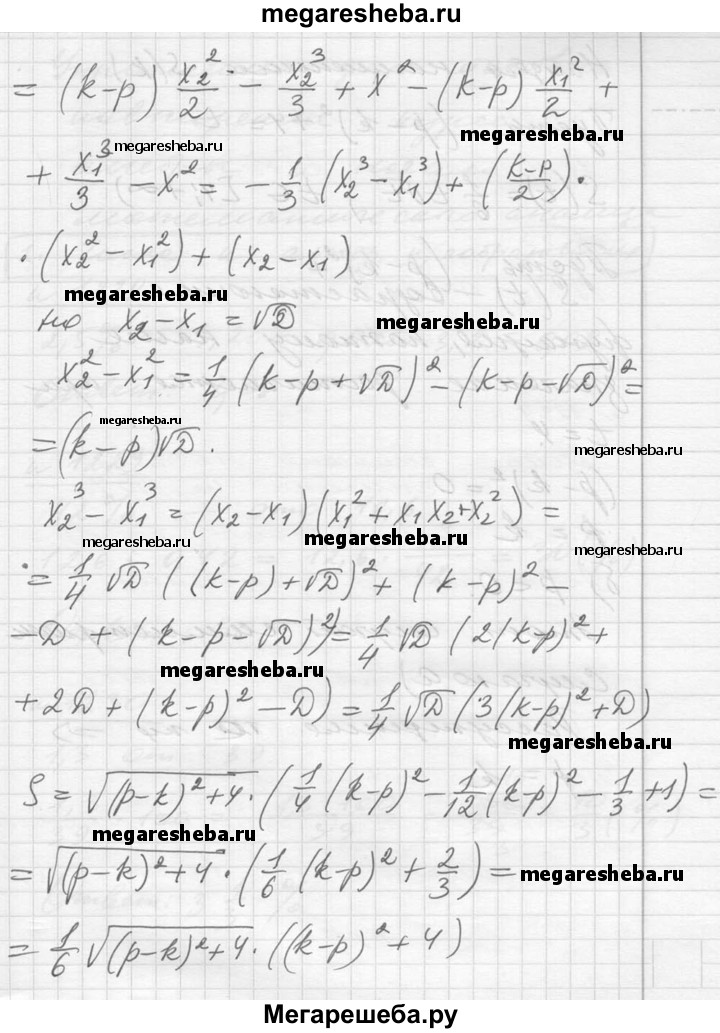 megaresheba.ru
= (k-p) x₂²/2 - x₂³/3 + x² - (k-p) x₁²/2 +
megaresheba.ru
megaresheba.ru
+ x₁³/3 - x² = -1/3 (x₂³ - x₁³) + (k-p/2) ·
· (x₂² - x₁²) + (x₂ - x₁)
megaresheba.ru
но x₂ - x₁ = √D
megaresheba.ru
x₂² - x₁² = 1/4 (k-p+√D)² - (k-p-√D)² =
megaresheba.ru
= (k-p)√D.
megaresheba.ru
x₂³ - x₁³ = (x₂ - x₁)(x₁² + x₁x₂ + x₂²) =
megaresheba.ru
megaresheba.ru
megaresheba.ru
= 1/4 √D ((k-p)+√D)² + (k-p)² -
- D + (k-p-√D)²) = 1/4 √D (2(k-p)² +
megaresheba.ru
+ 2D + (k-p)² - D) = 1/4 √D (3(k-p)² + D)
megaresheba.ru
S = √((p-k)²+4) · (1/4 (k-p)² - 1/12 (k-p)² - 1/3 + 1) =
megaresheba.ru
= √((p-k)²+4) · (1/6 (k-p)² + 2/3) =
megaresheba.ru
= 1/6 √((p-k)²+4) · ((k-p)² + 4)
Мегарешеба.ру